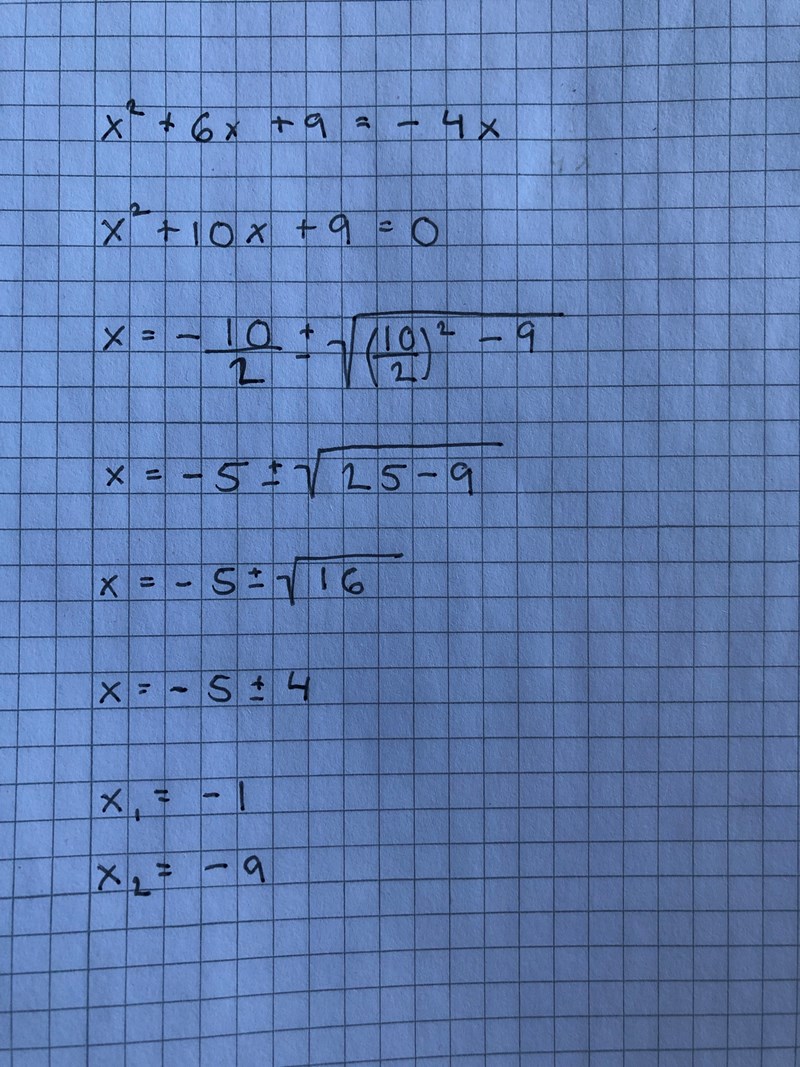 x² + 6x + 9 = - 4x
x² + 10x + 9 = 0
x = - 10/2 ± √((10/2)² - 9)
x = - 5 ± √(25 - 9)
x = - 5 ± √16
x = - 5 ± 4
x₁ = - 1
x₂ = - 9